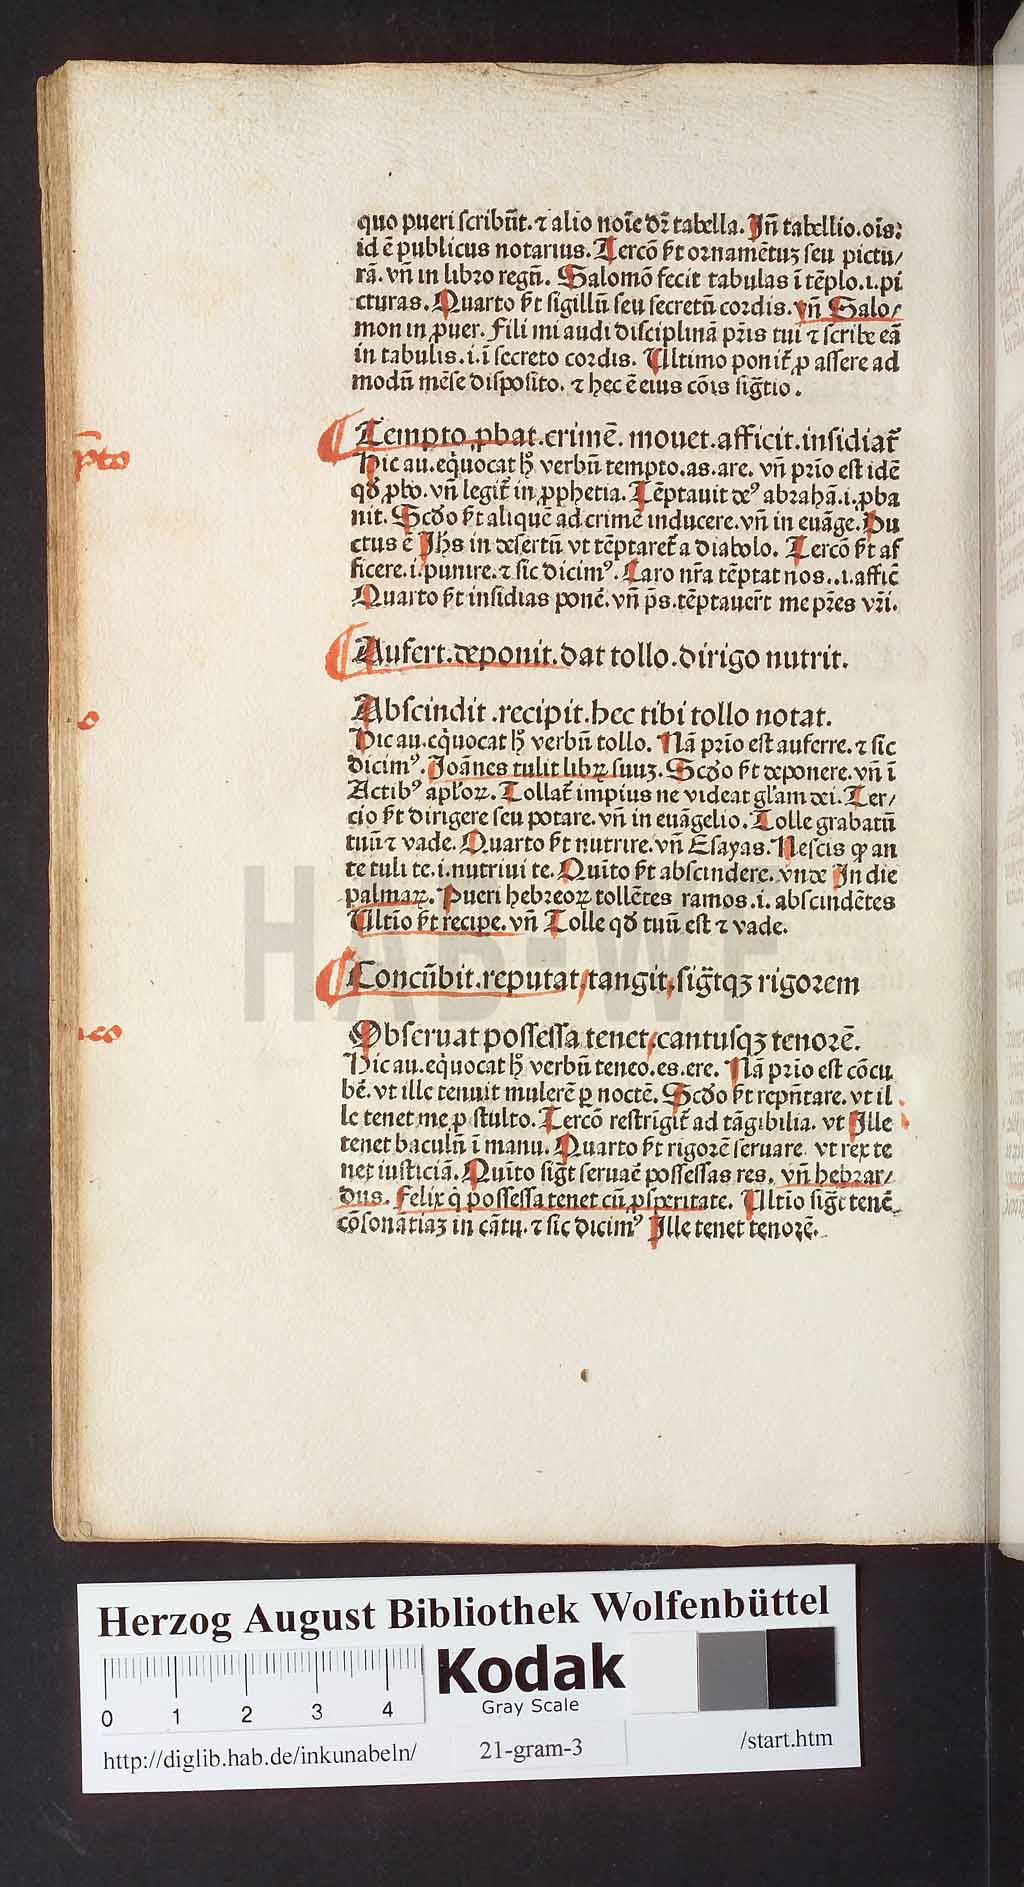 quo pueri scribūt. ⁊ alio noīe dr̄ tabella. Jn̄ tabellio.oīs:
id ē publicus notarius. Tercō ſꝉt ornamētuꝫ ſeu pictu/
rā. vn̄ in libro regū. Salomō fecit tabulas ī tēplo.i.pi
cturas. Quarto ſꝉt ſigillū ſeu ſecretū cordis. vn̄ Salo/
mon in ꝓuer. Fili mi audi diſciplinā pr̄is tui ⁊ ſcribe eā
in tabulis.i.ī ſecreto cordis. Ultimo ponit̄ ꝓ aſſere ad
modū mēſe diſpoſito. ⁊ hec ē eius cōis ſiḡtio.
Tempto ꝓbat.crimē. mouet.afficit.inſidiat̄
Hic au.eq̇uocat hͦ verbū tempto.as.are. vn̄ prīo eſt idē
qd̄ ꝓbo. vn̄ legit̄ in ꝓphetia. Tēptauit deꝰ abrahā.i.ꝓba
uit. Scd̄o ſꝉt aliquē ad crimē inducere. vn̄ in euāge. Du
ctus ē Jhs in deſertū vt tēptaret̄ a diabolo. Tercō ſꝉt af
ficere.i.punire. ⁊ ſic dicimꝰ. Caro nr̄a tēptat nos..i.afficē
Quarto ſꝉt inſidias ponē. vn̄ p̄s.tēptauer̄t me pr̄es vr̄i.
Aufert.deponit.dat tollo.dirigo nutrit.
Abſcindit.recipit.hec tibi tollo notat.
Hic au.eq̇uocat hͦ verbū tollo. Nā prīo eſt auferre. ⁊ ſic
dicimꝰ. Joānes tulit librꝝ ſuuꝫ. Scd̄o ſꝉt deponere. vn̄ ī
Actibꝰ apl'oꝝ. Tollat̄ impius ne videat gl'am dei. Ter/
cio ſꝉt dirigere ſeu potare. vn̄ in euāgelio. Tolle grabatū
tuū ⁊ vade. Quarto ſꝉt nutrire. vn̄ Eſayas. Neſcis ꝙ an
te tuli te.i.nutriui te. Quīto ſꝉt abſcindere. vnde Jn die
palmaꝝ. Pueri hebreoꝝ tollētes ramos.i.abſcindētes
Ultīo ſꝉt recipe. vn̄ Tolle qd̄ tuū eſt ⁊ vade.
Concūbit.reputat/tangit/ſiḡtqꝫ rigorem
Obſeruat poſſeſſa tenet/cantuſqꝫ tenorē.
Hic au.eq̇uocat hͦ verbū teneo.es.ere. Nā prīo eſt cōcu
bē. vt ille tenuit mulerē ꝑ noctē. Scd̄o ſꝉt repn̄tare. vt il
le tenet me ꝓ ſtulto. Tercō reſtrīgit̄ ad tāgibilia. vt Jlle
tenet baculū ī manu. Quarto ſꝉt rigorē ſeruare. vt rex te
net iuſticiā. Quīto ſiḡt ſeruaē poſſeſſas res. vn̄ hebrar/
dus. Felix q̇ poſſeſſa tenet cū ꝓſperitate. Ultīo ſiḡt tenē
cōſonātiaꝫ in cātu. ⁊ ſic dicimꝰ Jlle tenet tenorē.
p̄to
o
eo
HAB-WF
Herzog August Bibliothek Wolfenbüttel
0 1 2 3 4
Kodak
Gray Scale
http://diglib.hab.de/inkunabeln/
21-gram-3
/start.htm